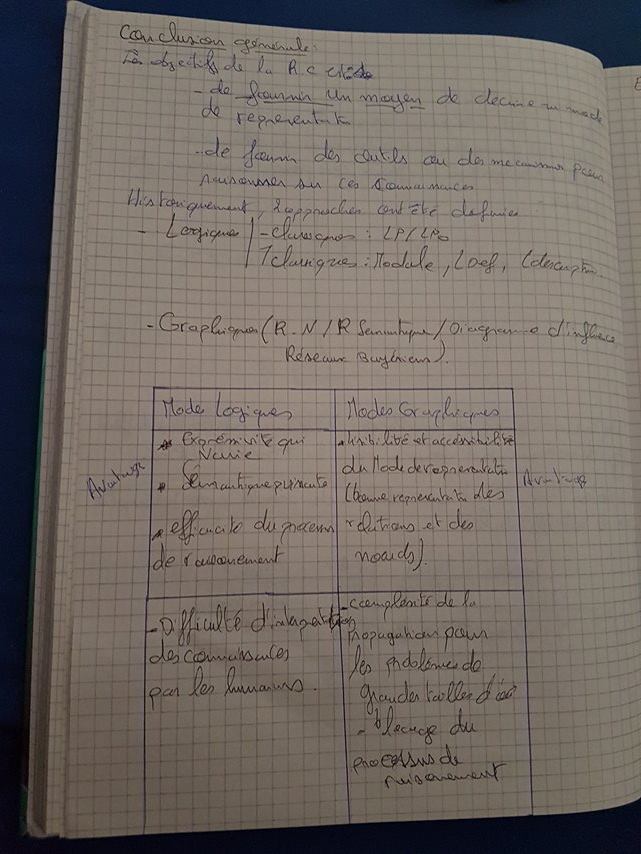 Conclusion générale:
Les objectifs de la R.C
- de fournir un moyen de décrire un mode
de representat
- de fournir des outils ou des mecanismes pour
raisonner sur ces connaissances
Historiquement, 2 approches ont été definies
- Logiques - classiques : LP/LPo
7 classiques : Modale, LDef, Ldescription
- Graphiques (R.N / R Semantique / Diagramme d'influence
Réseaux Bayésiens).
Modes Logiques
Modes Graphiques
Avantage
* Exprémivité qui
Varie
* Sémantique puissante
* efficacité du processus
de raisonnement
* lisibilité et accéssibilité
du Mode de representat
(bonne representat des
relations et des
noeuds).
Avantage
- Difficulté d'interpretation
des connaissances
par les humains.
- compléxité de la
propagation pour
les problèmes de
grandes tailles
- blocage du
processus de
raisonement